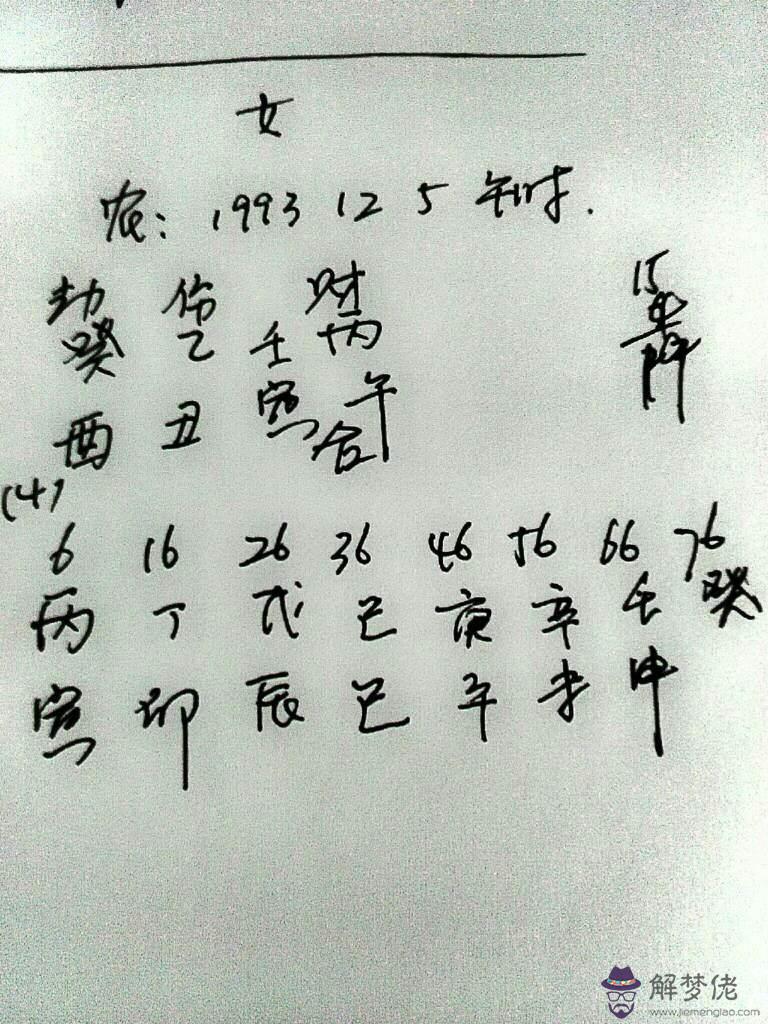 女
农: 1993 12 5 午时.
劫 伤 财
癸 乙 壬 丙
酉 丑 寅 午
合
(4)
6 16 26 36 46 56 66 76
丙 丁 戊 己 庚 辛 壬 癸
寅 卯 辰 巳 午 未 申
15
解梦佬
www.jiemenglao.com